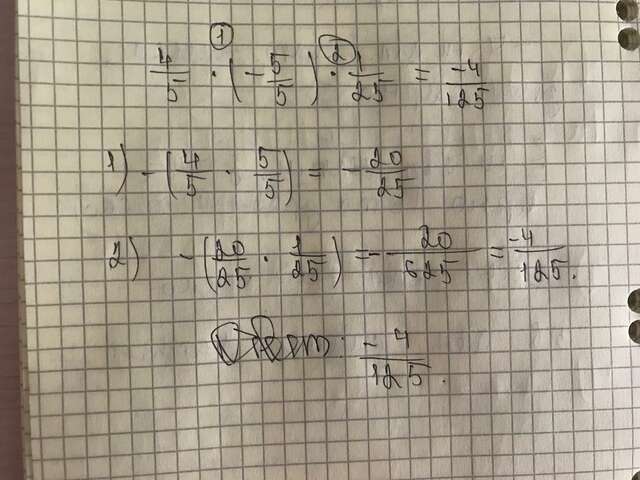 ① ②
4/5 · (- 5/5) · 1/25 = -4/125
1) - (4/5 · 5/5) = - 20/25
2) - (20/25 · 1/25) = - 20/625 = -4/125.
Ответ: -4/125.